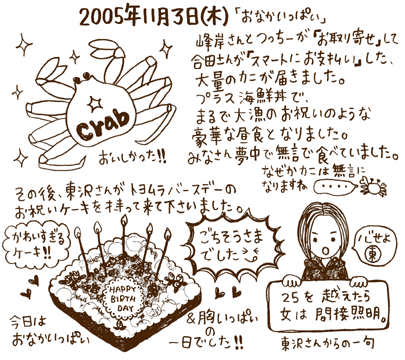 2005年11月3日(木)「おなかいっぱい」
峰岸さんとつっちーが「お取り寄せ」して
合田さんが「スマートにお支払い」した、
大量のカニが届きました。
プラス海鮮丼で、
まるで大漁のお祝いのような
豪華な昼食となりました。
みなさん夢中で無言で食べていました。
なぜかカニは無言に
なりますね
・・・・・
crab
おいしかった!!
その後、東沢さんがトヨムラバースデーの
お祝いケーキを持って来て下さいました。
かわいすぎる
ケーキ!!
HAPPY
BIRTH
DAY
ごちそうさま
でした
心せよ
東
25を越えたら
女は間接照明。
今日は
おなかいっぱい
&胸いっぱい
の
一日でした!!
東沢さんからの一句